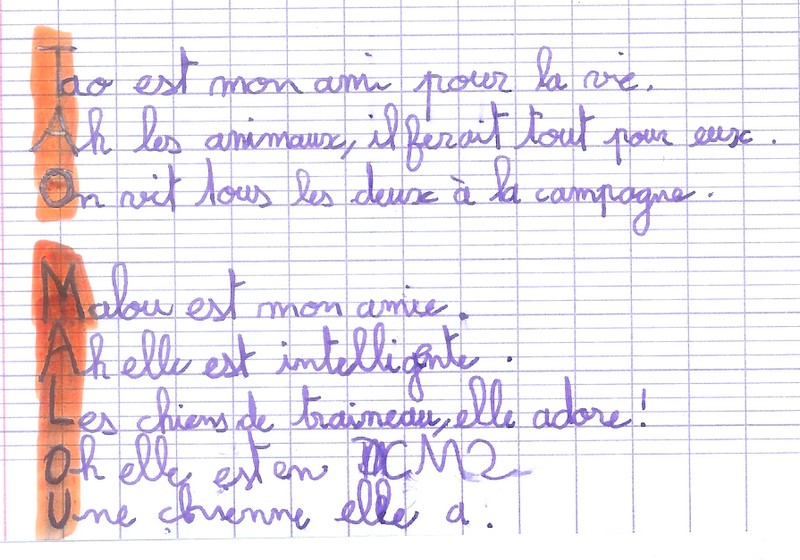 Tao est mon ami pour la vie.
Ah les animaux, il ferait tout pour eux.
On vit tous les deux à la campagne.
Malou est mon amie.
Ah elle est intelligente.
Les chiens de traineau, elle adore!
Oh elle est en CM2
Une chienne elle a.